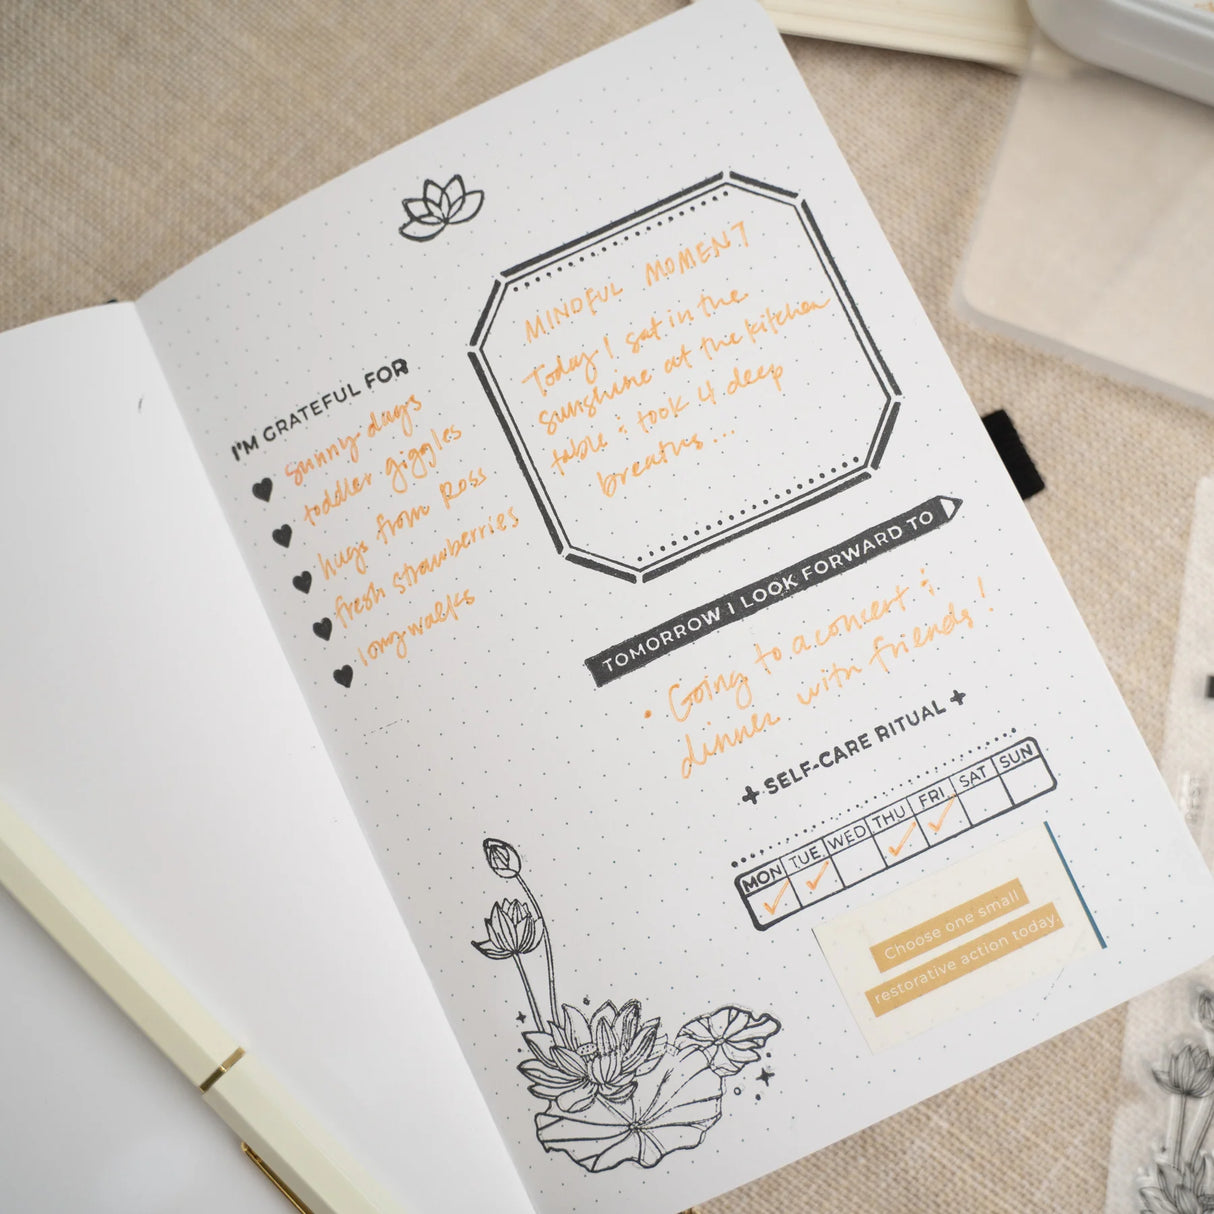 I'M GRATEFUL FOR
sunny days
toddler giggles
hugs from Ross
fresh strawberries
long walks
MINDFUL MOMENT
Today I sat in the
sunshine at the kitchen
table & took 4 deep
breaths...
TOMORROW I LOOK FORWARD TO
Going to a concert &
dinner with friends!
SELF-CARE RITUAL
MON TUE WED THU FRI SAT SUN
Choose one small
restorative action today.
REST